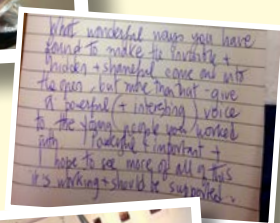 What wonderful ways you have
found to make the invisible +
hidden + shameful come out into
the open, but more than that - give
a powerful (+ interesting) voice
to the young people you worked
with. Powerful + important +
I hope to see more of all of this
its working + should be supported.